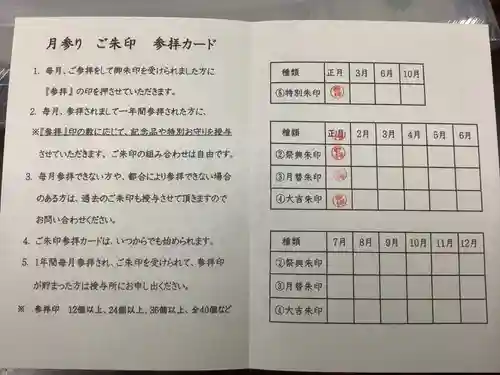 月参り ご朱印 参拝カード
1. 毎月、ご参拝をして御朱印を受けられました方に
『参拝』の印を押させていただきます。
2. 毎月、参拝されまして一年間参拝された方に、
※『参拝』印の数に応じて、記念品や特別お守りを授与
させていただきます。ご朱印の組み合わせは自由です。
3. 毎月参拝できない方や、都合により参拝できない場合
のある方は、過去のご朱印も授与させて頂きますので
お問い合わせください。
4. ご朱印参拝カードは、いつからでも始められます。
5. 1年間毎月参拝され、ご朱印を受けられて、参拝印
が貯まった方は授与所にお申し出ください。
※ 参拝印 12個以上、24個以上、36個以上、全40個など
種類 正月 3月 6月 10月
⑤特別朱印
種類 正月 2月 3月 4月 5月 6月
②祭典朱印
③月替朱印
④大吉朱印
種類 7月 8月 9月 10月 11月 12月
②祭典朱印
③月替朱印
④大吉朱印